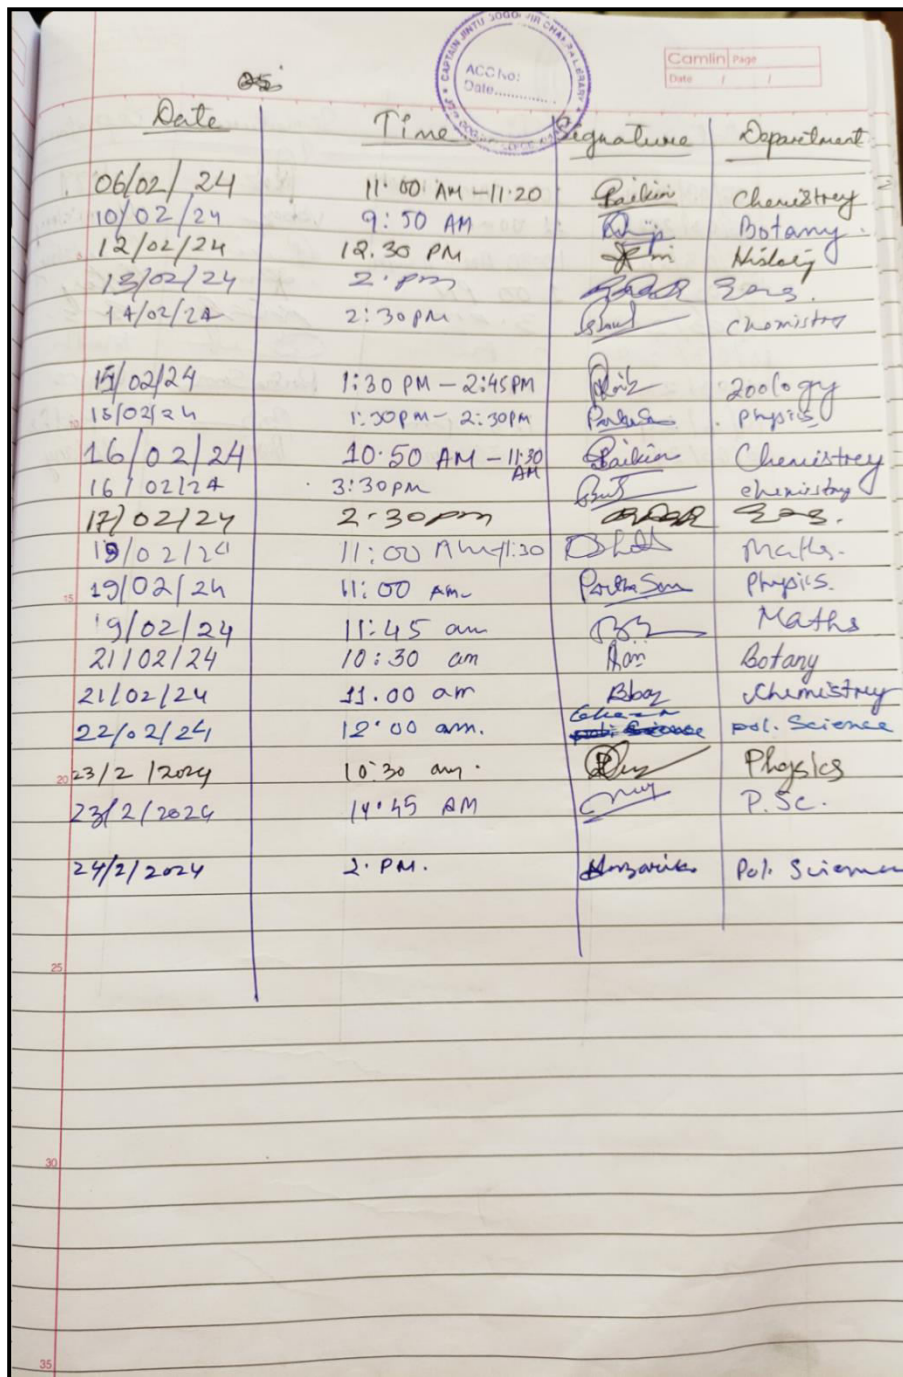 CAPTAIN JINTU GOGOI VIR CHAKRA LIBRARY
ACC No:
Date.............
Camlin Page
Date / /
Date Time Signature Department
06/02/24 11:00 AM - 11:20 Chemistrey
10/02/24 9:50 AM Botany.
12/02/24 12.30 PM History
13/02/24 2.pm
14/02/24 2:30pm chemistry
15/02/24 1:30 PM - 2:45PM Zoology
15/02/24 1:30pm - 2:30pm Physics
16/02/24 10.50 AM - 11:30 AM Chemistrey
16/02/24 3:30pm chemistry
17/02/24 2.30pm
19/02/24 11:00 AM-11:30 Maths.
19/02/24 11:00 Am Partha Son Physics.
19/02/24 11:45 am Maths
21/02/24 10:30 am Botany
21/02/24 11.00 am Chemistrey
22/02/24 12.00 am. pol. Science
23/2/2024 10:30 am. Physics
23/2/2024 AM P.Sc.
24/2/2024 2.PM. Hazarika Pol. Science
5
10
15
20
25
30
35